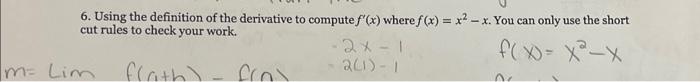 6. Using the definition of the derivative to compute f'(x) where f(x) = x² – x. You can only use the short
cut rules to check your work.
2x - 1
f(x) = x² - x
2(1) - 1
m = Lim f(a+h) - f(a)